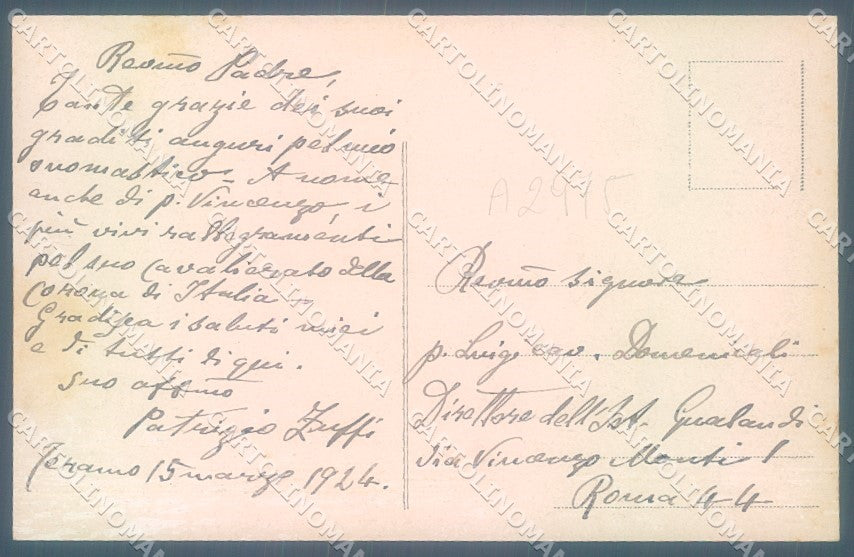 Revmo Padre,
tante grazie dei suoi
graditi auguri pel mio
onomastico - A nome
anche di p. Vincenzo, i
più vivi rallegramenti
pel suo cavalierato della
Corona di Italia -
Gradisca i saluti miei
e di tutti di qui.
suo affmo
Patrizio Zuffi
Teramo 15 marzo 1924.
A2915
Revmo signore
p. Luigi cav. Domenicali
Direttore dell'Ist. Gualandi
via Vincenzo Monti 1
Roma 44
CARTOLINOMANIA